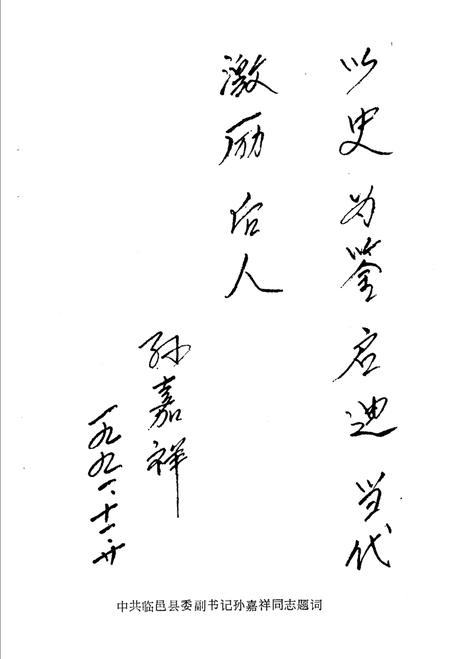 以史为鉴启迪当代
激励后人
孙嘉祥
一九九一.十一.廿
中共临邑县委副书记孙嘉祥同志题词